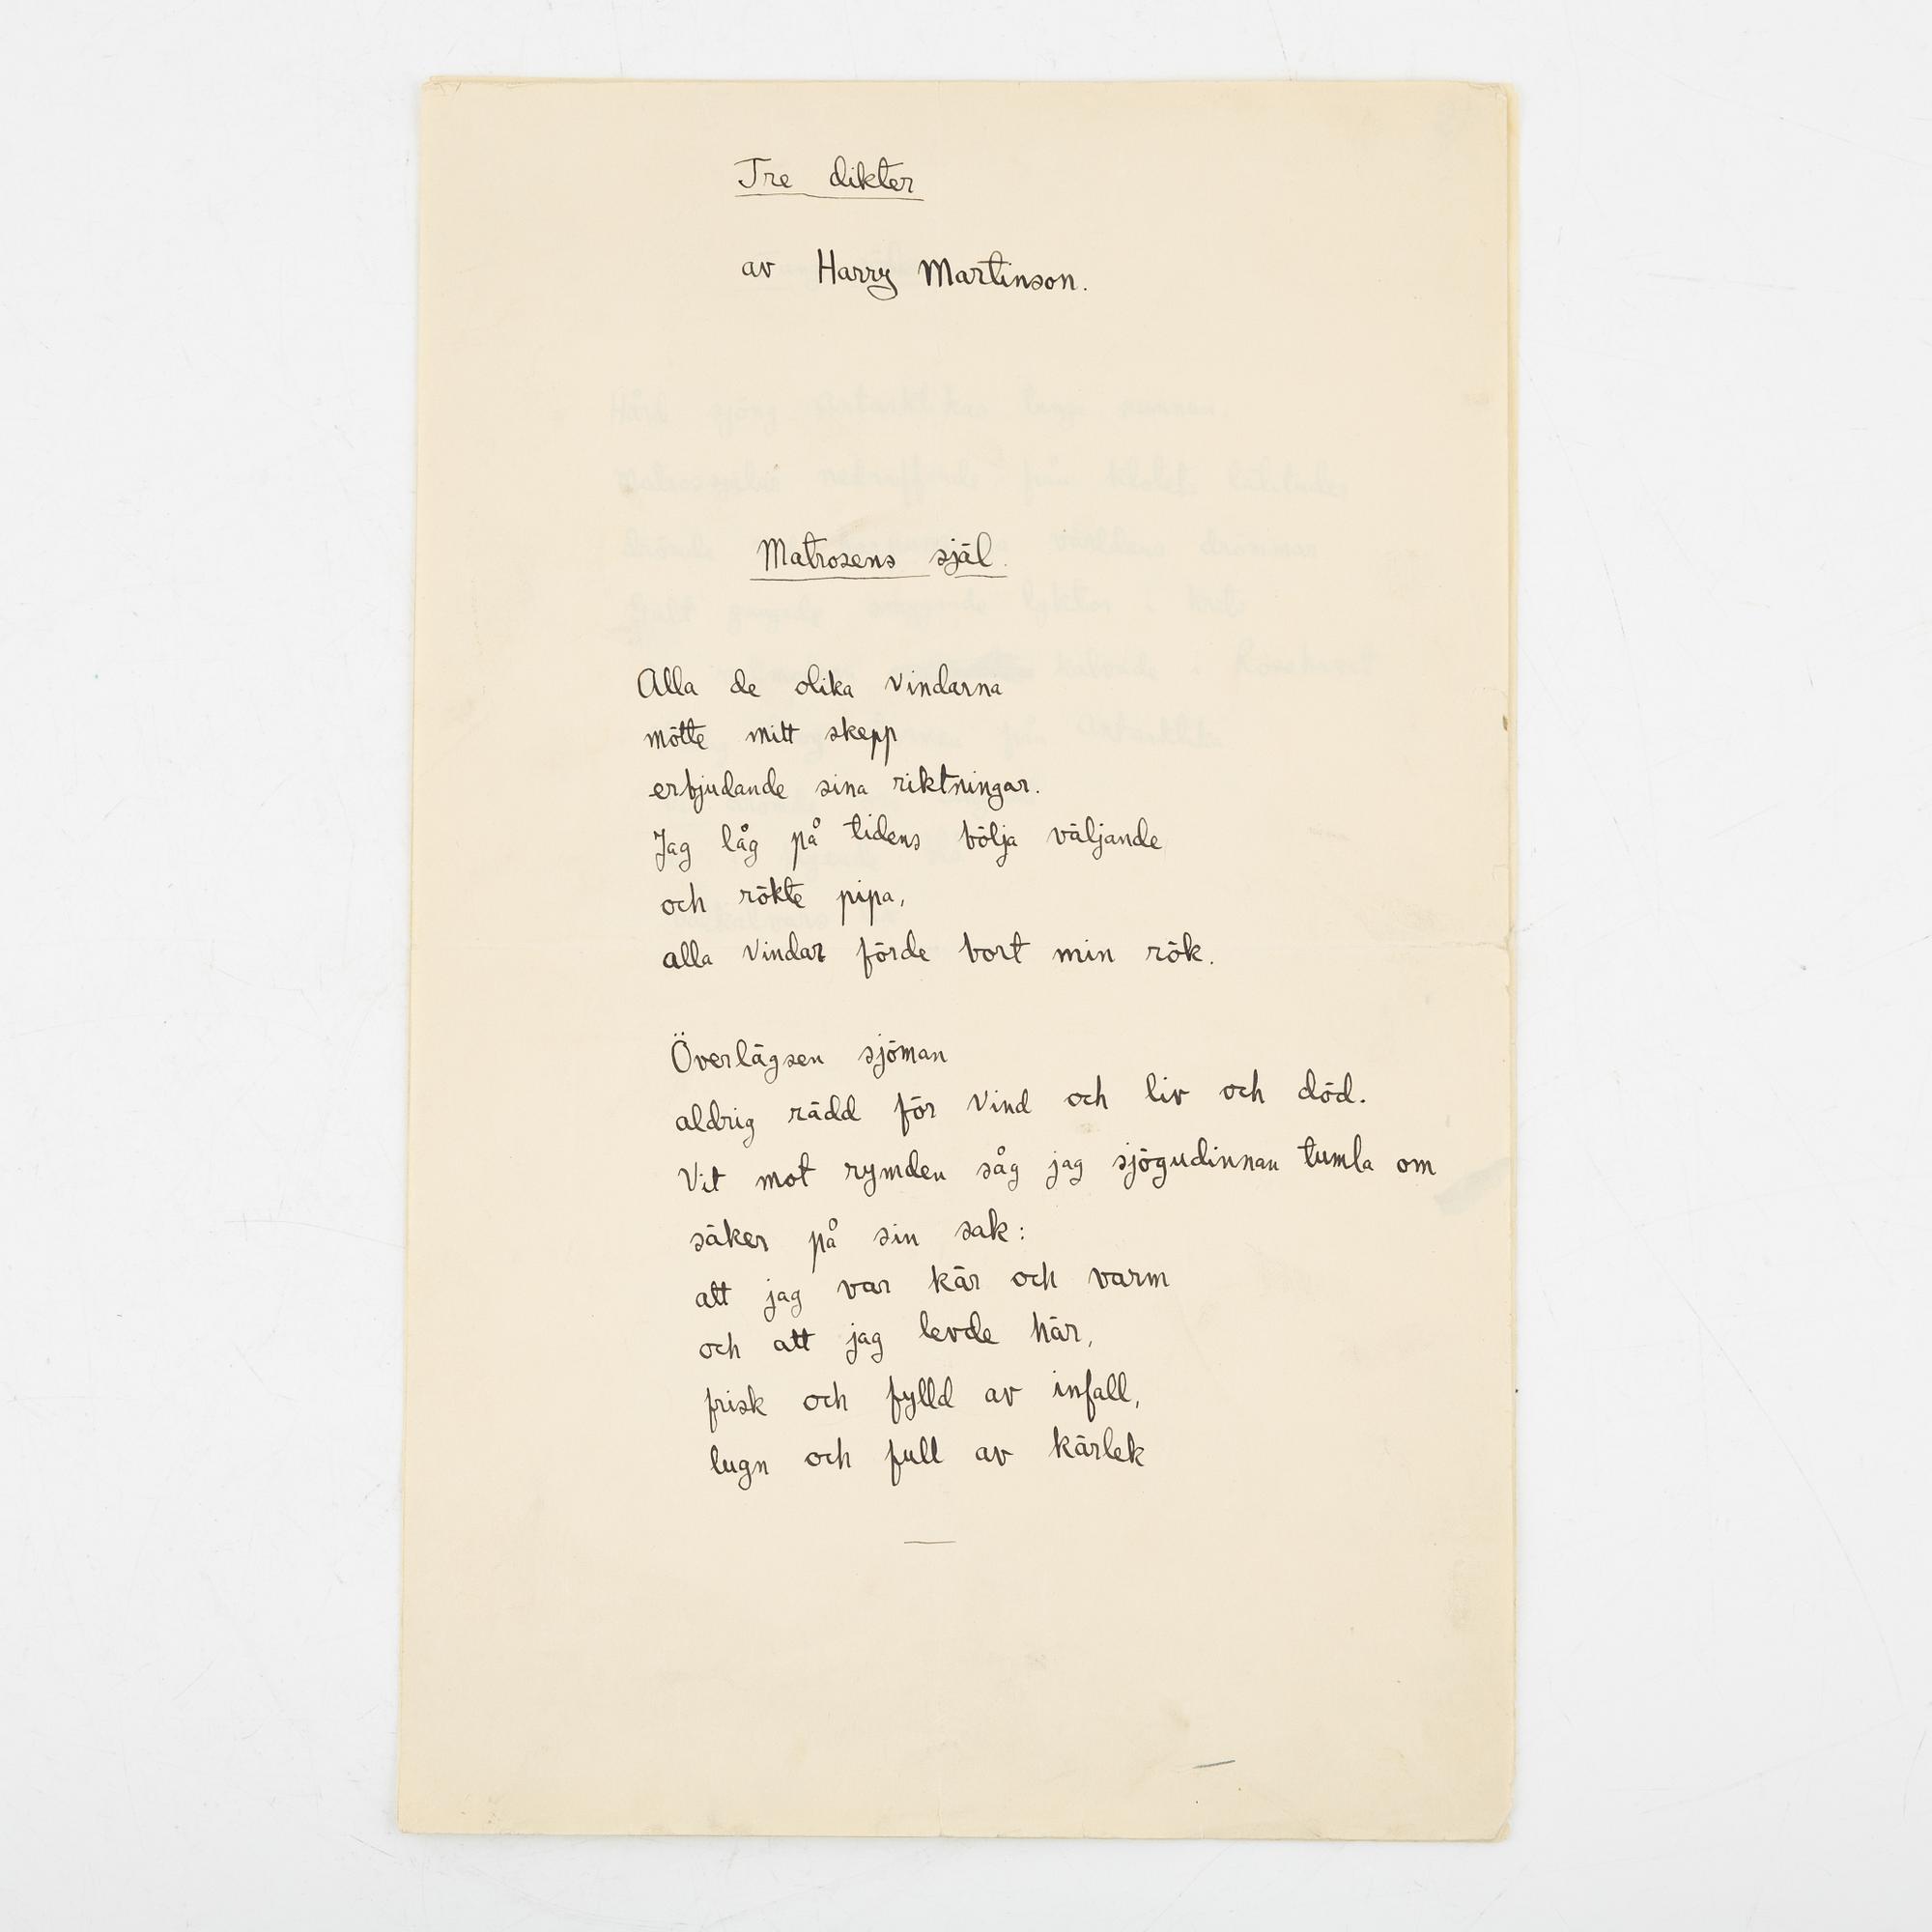 Tre dikter
av Harry Martinson.
Matrosens själ.
Alla de olika vindarna
mötte mitt skepp
erbjudande sina riktningar.
Jag låg på tidens bölja väljande
och rökte pipa,
alla vindar förde bort min rök.
Överlägsen sjöman
aldrig rädd för vind och liv och död.
Vit mot rymden såg jag sjögudinnan tumla om
säker på sin sak:
att jag var kär och varm
och att jag levde här,
frisk och fylld av infall,
lugn och full av kärlek